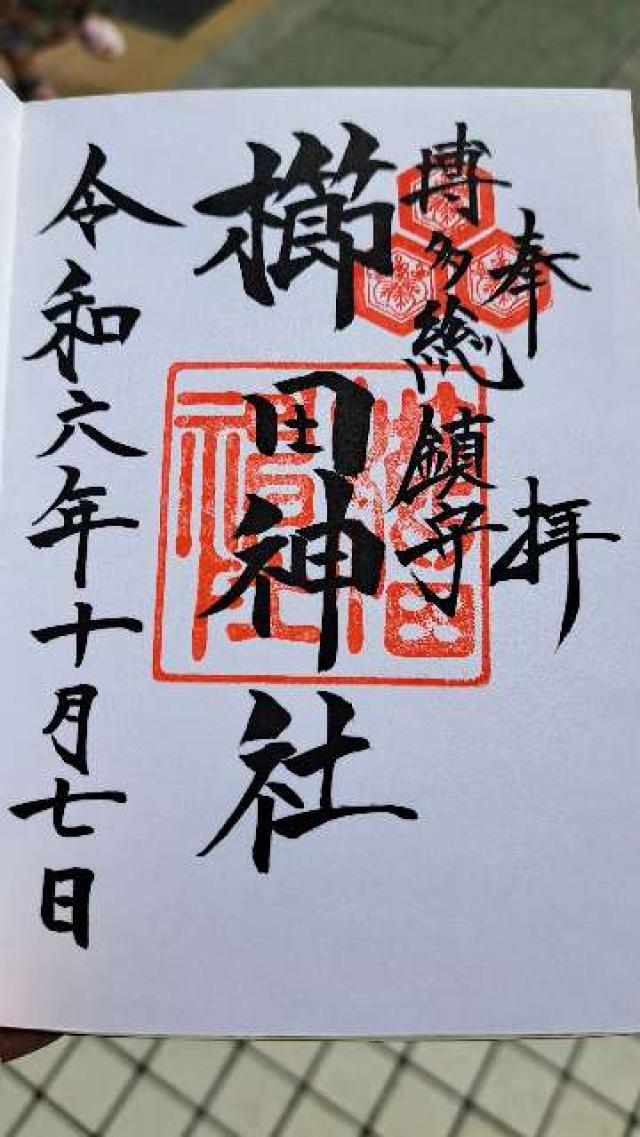 奉拝
博多総鎮守
櫛田神社
令和六年十月七日
櫛田
神社